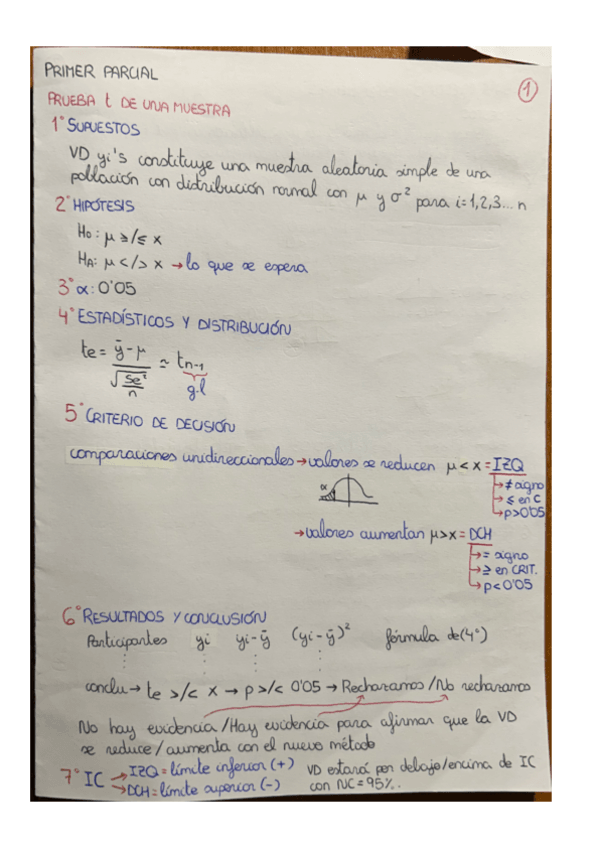 PRIMER PARCIAL
1
PRUEBA t DE UNA MUESTRA
1° SUPUESTOS
VD yi's constituye una muestra aleatoria simple de una
población con distribución normal con μ y σ² para i=1,2,3... n
2° HIPÓTESIS
H₀: μ ≥/≤ x
Hₐ: μ </> x → lo que se espera
3° α: 0'05
4° ESTADÍSTICOS Y DISTRIBUCIÓN
te = ȳ - μ / √(Se²/n) ≃ tn-1
g.l
5° CRITERIO DE DECISIÓN
comparaciones unidireccionales → valores se reducen μ < x = IZQ
α
→ ≠ signo
→ ≤ en C
→ p>0'05
→ valores aumentan μ > x = DCH
→ = signo
→ ≥ en CRIT.
→ p<0'05
6° RESULTADOS Y CONCLUSIÓN
Participantes yi yi-ȳ (yi-ȳ)² fórmula de (4°)
conclu → te >/< x → p >/< 0'05 → Rechazamos / No rechazamos
No hay evidencia / Hay evidencia para afirmar que la VD
se reduce / aumenta con el nuevo método
7° IC → IZQ = límite inferior (+) VD estará por debajo/encima de IC
→ DCH = límite superior (-) con NC = 95%.